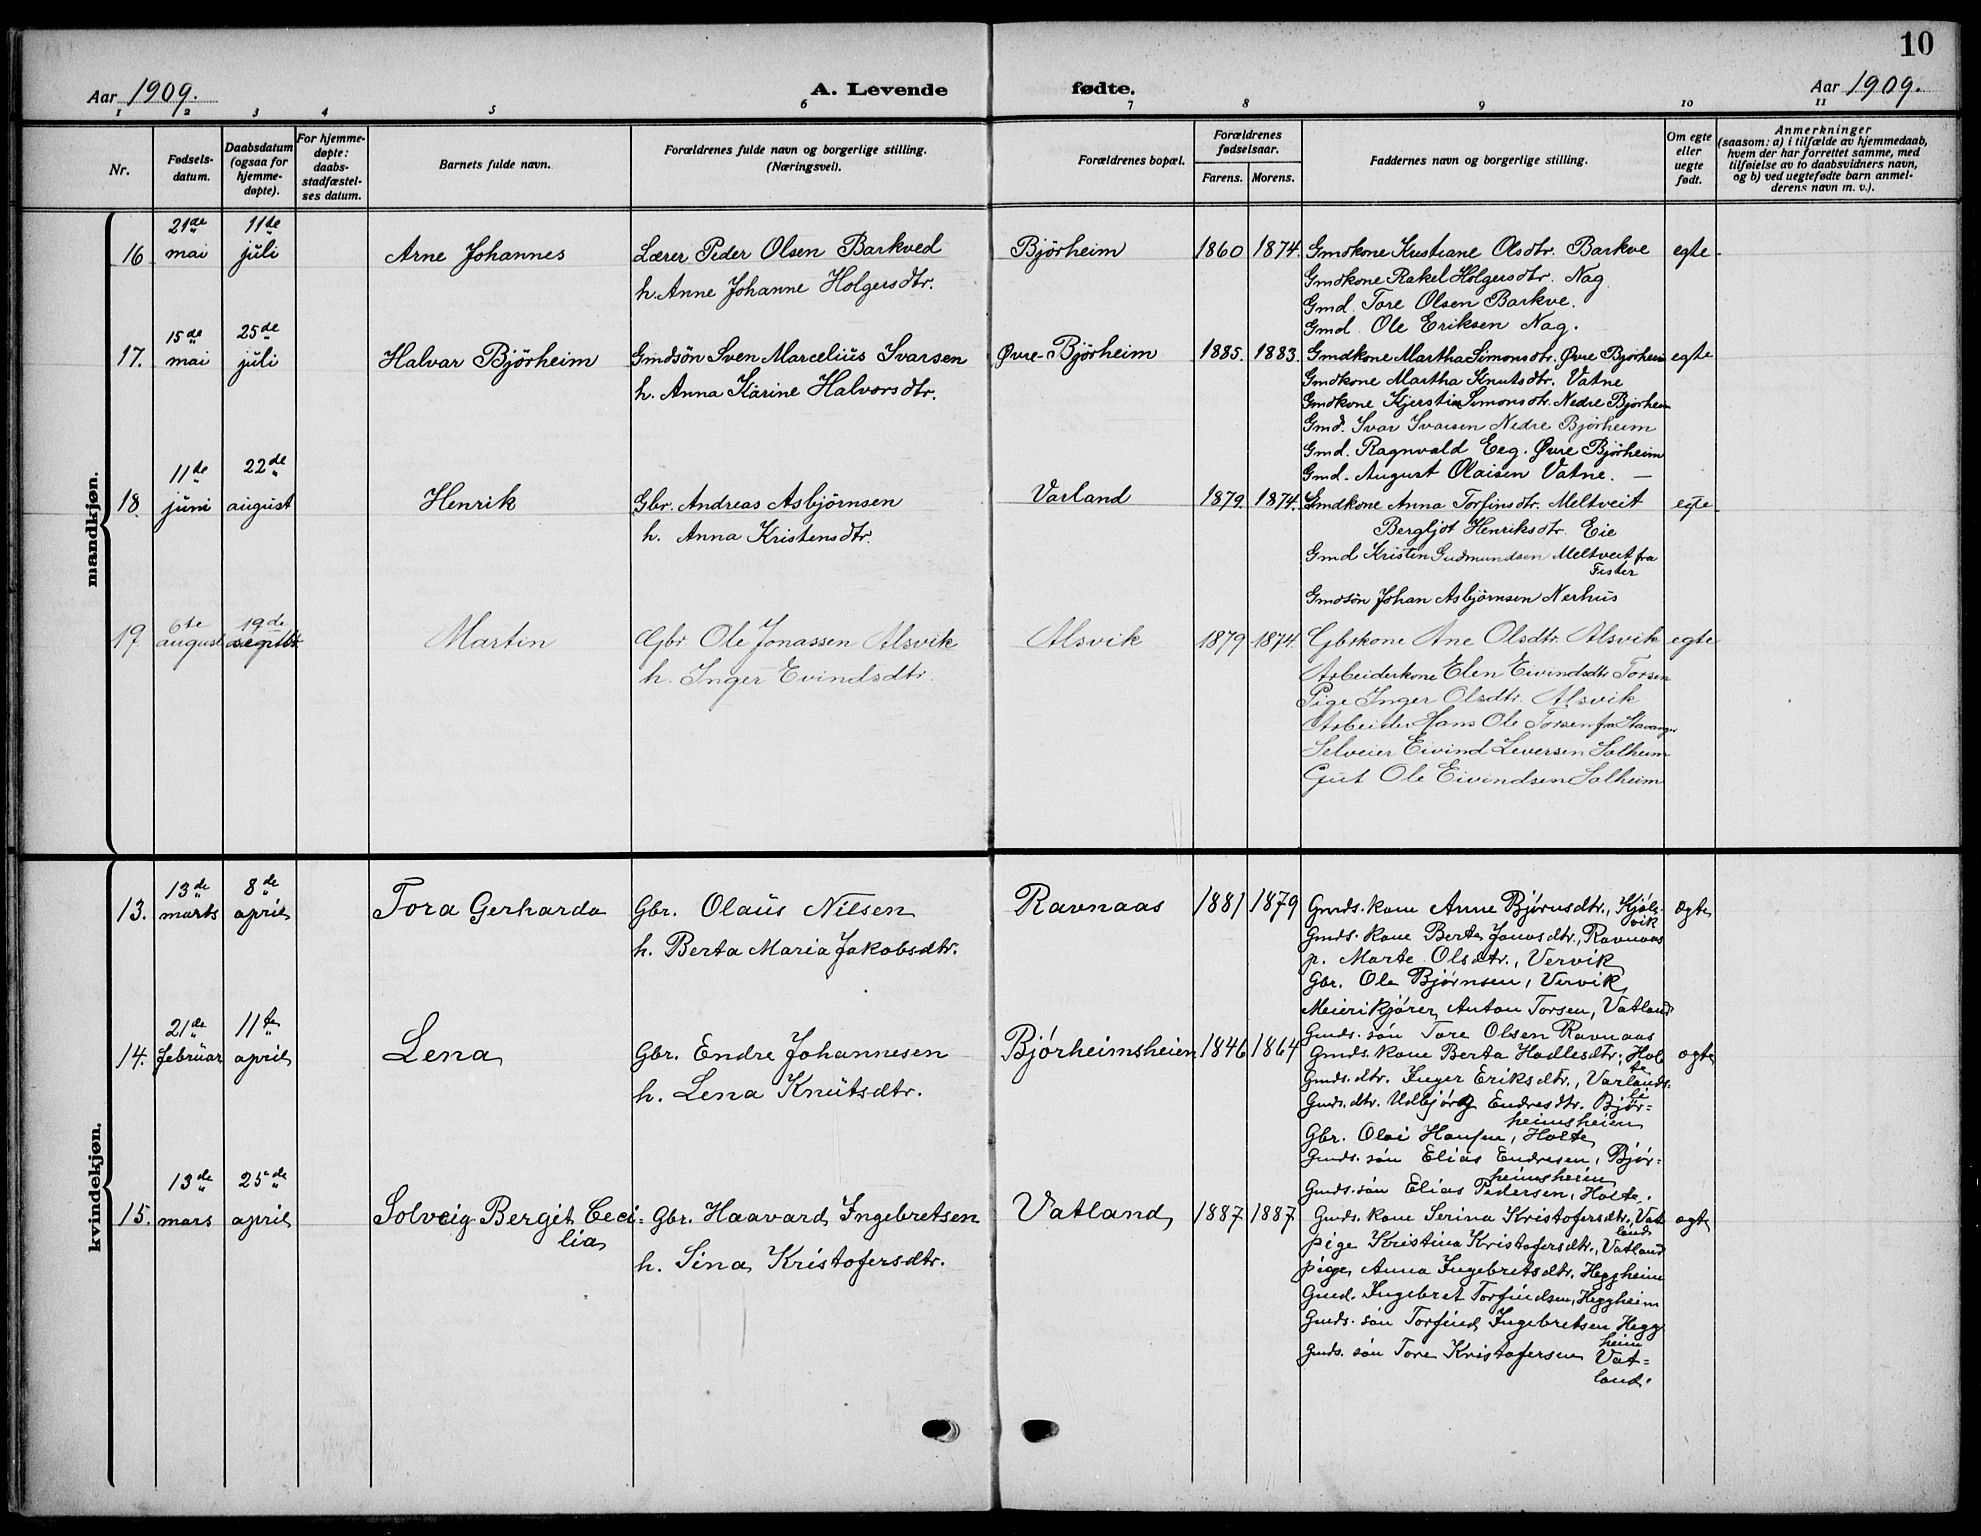 10
Aar 1909. A. Levende fødte. Aar 1909.
1 2 3 4 5 6 7 8 9 10 11
Nr.
Fødsels-
datum.
Daabsdatum
(ogsaa for
hjemme-
døpte).
For hjemme-
døpte:
daabs-
stadfæstel-
ses datum.
Barnets fulde navn.
Forældrenes fulde navn og borgerlige stilling.
(Næringsvei).
Forældrenes bopæl.
Forældrenes
fødselsaar.
Farens. Morens.
Faddernes navn og borgerlige stilling.
Om egte
eller
uegte
født.
Anmerkninger
(saasom: a) i tilfælde av hjemmedaab,
hvem der har forrettet samme, med
tilføielse av to daabsvidners navn,
og b) ved uegtefødte barn anmel-
derens navn m. v.).
mandkjøn.
21de 11te
16 mai juli Arne Johannes Lærer Peder Olsen Barkved Bjørheim 1860 1874. Gmdkone Kristiane Olsdtr. Barkve egte
h. Anne Johanne Holgersdtr. Gmdkone Rakel Holgersdtr. Nag
Gmd. Tore Olsen Barkve.
Gmd. Ole Eriksen Nag.
15de 25de
17. mai juli Halvar Bjørheim Gmdsøn Sven Marcelius Ivarsen Øvre-Bjørheim 1885. 1883. Gmdkone Martha Simonsdtr. Øvre Bjørheim egte
h. Anna Karine Halvorsdtr. Gmdkone Martha Knutsdtr. Vatne
Gmdkone Kjerstin Simonsdtr. Nedre Bjørheim
Gmd. Ivar Ivarsen Nedre Bjørheim
Gmd. Ragnvald Eeg. Øvre Bjørheim
Gmd. August Olaisen Vatne. —
11de 22de
18. juni august Henrik Gbr. Andreas Asbjørnsen Varland 1879. 1874. Gmdkone Anna Torfinsdtr. Meltveit egte
h. Anna Kristensdtr. Bergljot Henriksdtr. Eie
Gmd Kristen Gudmundsen Meltveit fra
Fister
Gmdsøn Johan Asbjørnsen Nerhus
6te 19de
19 august septbr. Martin Gbr Ole Jonassen Alsvik Alsvik 1879 1874. Gbrkone Ane Olsdtr. Alsvik egte
h. Inger Evindsdtr. Arbeiderkone Elen Eivindsdtr Torsen
Pige Inger Olsdtr Alsvik
Arbeider Hans Ole Torsen fra Stavanger
Selveier Eivind Leversen Solheim
Gut Ole Eivindsen Solheim
kvindekjøn.
13de 8de
13. marts april Tora Gerharda Gbr. Olaus Nilsen Ravnaas 1881 1879 Gmds. kone Anne Bjørnsdtr., Kjøls-
vik
ægte
h. Berta Maria Jakobsdtr. Gmds. kone Berte Jonasdtr., Ravnaas
p. Marte Olsdtr., Vervik
Gbr. Ole Bjørnsen, Vervik
Meierikjører Anton Torsen, Vatland
Gmds. søn Tore Olsen Ravnaas
21de 11te
14. februar april Lena Gbr. Endre Johannesen Bjørheimsheien 1846 1864 Gmds. kone Berta Hadlesdtr., Hol
te
ægte
h. Lena Knutsdtr. Gmds. dtr. Inger Eriksdtr., Varlands-
li
Gmds. dtr. Udbjørg Endresdtr. Bjør=
heimsheien
Gbr. Olai Hansen, Holte
Gmds. søn Elias Endresen, Bjør=
heimsheim
Gmds. søn Elias Pedersen, Holte.
13de 25de
15. mars april Solveig Bergit Ceci- Gbr. Haavard Ingebretsen Vatland 1887 1887 Gmds. kone Serina Kristofersdtr., Vat
land
ægte
lia h. Sina Kristofersdtr. pige Kristina Kristofersdtr., Vatland
pige Anna Ingebretsdtr. Heggheim
Gmd. Ingebret Torfindsen, Heggheim
Gmds. søn Torfind Ingebretsen Hegg
heim
Gmds. søn Tore Kristofersen Vat=
land.